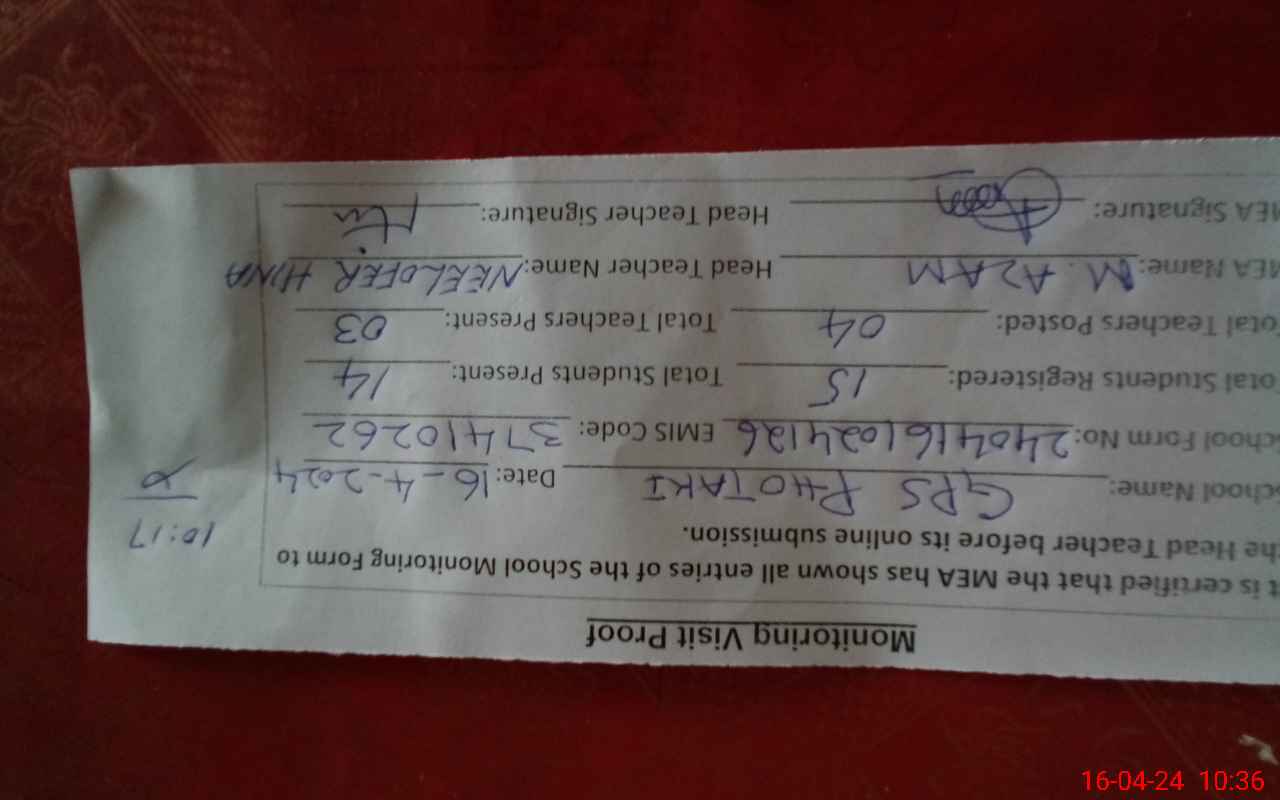 Monitoring Visit Proof
t is certified that the MEA has shown all entries of the School Monitoring Form to
he Head Teacher before its online submission.
10:17
chool Name: GPS PHOTAKI Date: 16-4-2024
chool Form No: 2404161024126 EMIS Code: 37410262
otal Students Registered: 15 Total Students Present: 14
otal Teachers Posted: 04 Total Teachers Present: 03
MEA Name: M. AZAM Head Teacher Name: NEELOFER HINA
MEA Signature: Head Teacher Signature:
16-04-24 10:36